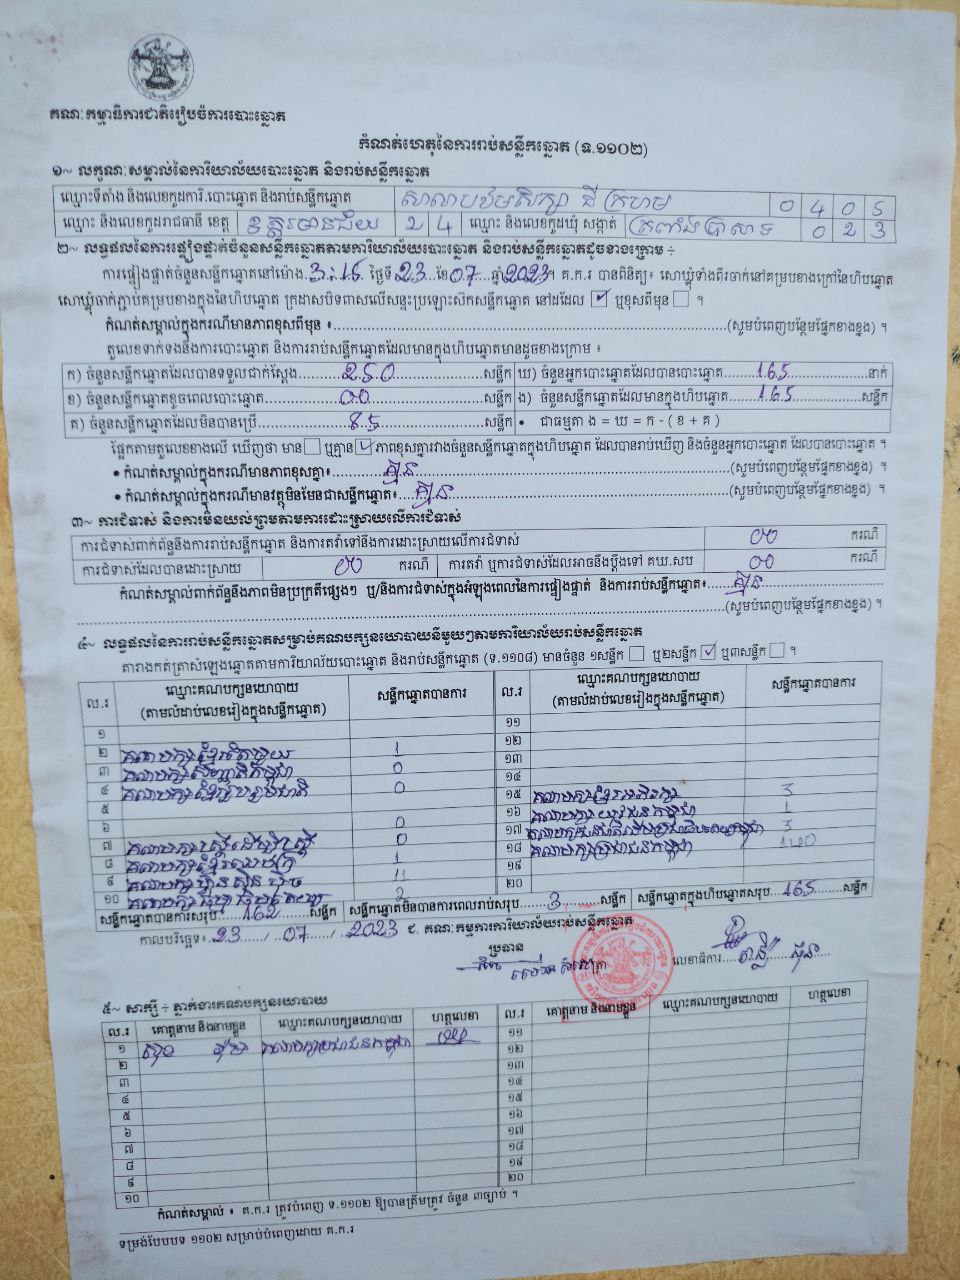 គណៈកម្មាធិការជាតិរៀបចំការបោះឆ្នោត
កំណត់ហេតុនៃការរាប់សន្លឹកឆ្នោត (ទ.១១០២)
១~ លក្ខណៈសម្គាល់នៃការិយាល័យបោះឆ្នោត និងរាប់សន្លឹកឆ្នោត
ឈ្មោះទីតាំង និងលេខកូដការិ.បោះឆ្នោត និងរាប់សន្លឹកឆ្នោត សាលាបឋមសិក្សា ដីក្រហម 0 4 0 5
ឈ្មោះ និងលេខកូដរាជធានី ខេត្ត ឧត្តរមានជ័យ 2 4 ឈ្មោះ និងលេខកូដឃុំ សង្កាត់ ត្រពាំងប្រាសាទ 0 2 3
២~ លទ្ធផលនៃការផ្ទៀងផ្ទាត់ចំនួនសន្លឹកឆ្នោតតាមការិយាល័យបោះឆ្នោត និងរាប់សន្លឹកឆ្នោតដូចខាងក្រោម ÷
ការផ្ទៀងផ្ទាត់ចំនួនសន្លឹកឆ្នោតនៅម៉ោង.3:15.ថ្ងៃទី.23.ខែ.07.ឆ្នាំ.2023។ គ.ក.រ បានពិនិត្យ៖ សោឃ្លុំទាំងពីរចាក់នៅគម្របខាងក្រៅនៃហិបឆ្នោត
សោឃ្លុំចាក់ភ្ជាប់គម្របខាងក្នុងនៃហិបឆ្នោត ក្រដាសបិទពាសលើសន្ទះប្រឡោះស៊កសន្លឹកឆ្នោត នៅដដែល ☑ ឬខុសពីមុន ☐ ។
កំណត់សម្គាល់ក្នុងករណីមានភាពខុសពីមុន ៖..........(សូមបំពេញបន្ថែមផ្នែកខាងខ្នង) ។
តួលេខទាក់ទងនឹងការបោះឆ្នោត និងការរាប់សន្លឹកឆ្នោតដែលមានក្នុងហិបឆ្នោតមានដូចខាងក្រោម ៖
ក) ចំនួនសន្លឹកឆ្នោតដែលបានទទួលជាក់ស្តែង.....250.....សន្លឹក ឃ) ចំនួនអ្នកបោះឆ្នោតដែលបានបោះឆ្នោត.....165.....នាក់
ខ) ចំនួនសន្លឹកឆ្នោតខូចពេលបោះឆ្នោត.....00.....សន្លឹក ង) ចំនួនសន្លឹកឆ្នោតដែលមានក្នុងហិបឆ្នោត.....165.....សន្លឹក
គ) ចំនួនសន្លឹកឆ្នោតដែលមិនបានប្រើ.....85.....សន្លឹក • ជាធម្មតា ង = ឃ = ក - ( ខ + គ )
ផ្អែកតាមតួលេខខាងលើ ឃើញថា មាន ☐ ឬគ្មាន ☑ ភាពខុសគ្នារវាងចំនួនសន្លឹកឆ្នោតក្នុងហិបឆ្នោត ដែលបានរាប់ឃើញ និងចំនួនអ្នកបោះឆ្នោត ដែលបានបោះឆ្នោត ។
• កំណត់សម្គាល់ក្នុងករណីមានភាពខុសគ្នា៖.....គ្មាន.....(សូមបំពេញបន្ថែមផ្នែកខាងខ្នង) ។
• កំណត់សម្គាល់ក្នុងករណីមានវត្ថុមិនមែនជាសន្លឹកឆ្នោត៖.....គ្មាន.....(សូមបំពេញបន្ថែមផ្នែកខាងខ្នង) ។
៣~ ការជំទាស់ និងការមិនយល់ព្រមតាមការដោះស្រាយលើការជំទាស់
ការជំទាស់ពាក់ព័ន្ធនឹងការរាប់សន្លឹកឆ្នោត និងការតវ៉ាទៅនឹងការដោះស្រាយលើការជំទាស់ 00 ករណី
ការជំទាស់ដែលបានដោះស្រាយ 00 ករណី ការតវ៉ា ឬការជំទាស់ដែលអាចនឹងប្តឹងទៅ គឃ.សប 00 ករណី
កំណត់សម្គាល់ពាក់ព័ន្ធនឹងភាពមិនប្រក្រតីផ្សេងៗ ឬ/និងការជំទាស់ក្នុងអំឡុងពេលនៃការផ្ទៀងផ្ទាត់ និងការរាប់សន្លឹកឆ្នោត៖.....គ្មាន.....
(សូមបំពេញបន្ថែមផ្នែកខាងខ្នង) ។
៤~ លទ្ធផលនៃការរាប់សន្លឹកឆ្នោតសម្រាប់គណបក្សនយោបាយនីមួយៗតាមការិយាល័យរាប់សន្លឹកឆ្នោត
តារាងកត់ត្រាសំឡេងឆ្នោតតាមការិយាល័យបោះឆ្នោត និងរាប់សន្លឹកឆ្នោត (ទ.១១០៨) មានចំនួន ១សន្លឹក ☐ ឬ២សន្លឹក ☑ ឬ៣សន្លឹក ☐ ។
ល.រ ឈ្មោះគណបក្សនយោបាយ (តាមលំដាប់លេខរៀងក្នុងសន្លឹកឆ្នោត) សន្លឹកឆ្នោតបានការ ល.រ ឈ្មោះគណបក្សនយោបាយ (តាមលំដាប់លេខរៀងក្នុងសន្លឹកឆ្នោត) សន្លឹកឆ្នោតបានការ
១ ១១
២ គណបក្សខ្មែរតែមួយ 1 ១២
៣ គណបក្សសញ្ជាតិកម្ពុជា 0 ១៣
៤ គណបក្សខ្មែររួបរួមជាតិ 0 ១៤
៥ ១៥ គណបក្សខ្មែរអភិរក្ស 3
៦ 0 ១៦ គណបក្សយុវជនកម្ពុជា 1
៧ គណបក្សស្ត្រីដើម្បីស្ត្រី 0 ១៧ 3
៨ គណបក្សខ្មែរឈប់ក្រ 1 ១៨ គណបក្សប្រជាជនកម្ពុជា 140
៩ គណបក្សហ៊្វុនស៊ិនប៉ិច 11 ១៩
១០ គណបក្សធម្មាធិបតេយ្យ 2 ២០
សន្លឹកឆ្នោតបានការសរុប.....162.....សន្លឹក សន្លឹកឆ្នោតមិនបានការពេលរាប់សរុប.....3.....សន្លឹក សន្លឹកឆ្នោតក្នុងហិបឆ្នោតសរុប.....165.....សន្លឹក
កាលបរិច្ឆេទ៖ 23 / 07 / 2023 ជ. គណៈកម្មការការិយាល័យរាប់សន្លឹកឆ្នោត
ប្រធាន
លេខាធិការ
៥~ សាក្សី ÷ ភ្នាក់ងារគណបក្សនយោបាយ
ល.រ គោត្តនាម និងនាមខ្លួន ឈ្មោះគណបក្សនយោបាយ ហត្ថលេខា ល.រ គោត្តនាម និងនាមខ្លួន ឈ្មោះគណបក្សនយោបាយ ហត្ថលេខា
១ គណបក្សប្រជាជនកម្ពុជា ១១
២ ១២
៣ ១៣
៤ ១៤
៥ ១៥
៦ ១៦
៧ ១៧
៨ ១៨
៩ ១៩
១០ ២០
កំណត់សម្គាល់ ៖ គ.ក.រ ត្រូវបំពេញ ទ.១១០២ ឱ្យបានត្រឹមត្រូវ ចំនួន ៣ច្បាប់ ។
ទម្រង់បែបបទ ១១០២ សម្រាប់បំពេញដោយ គ.ក.រ